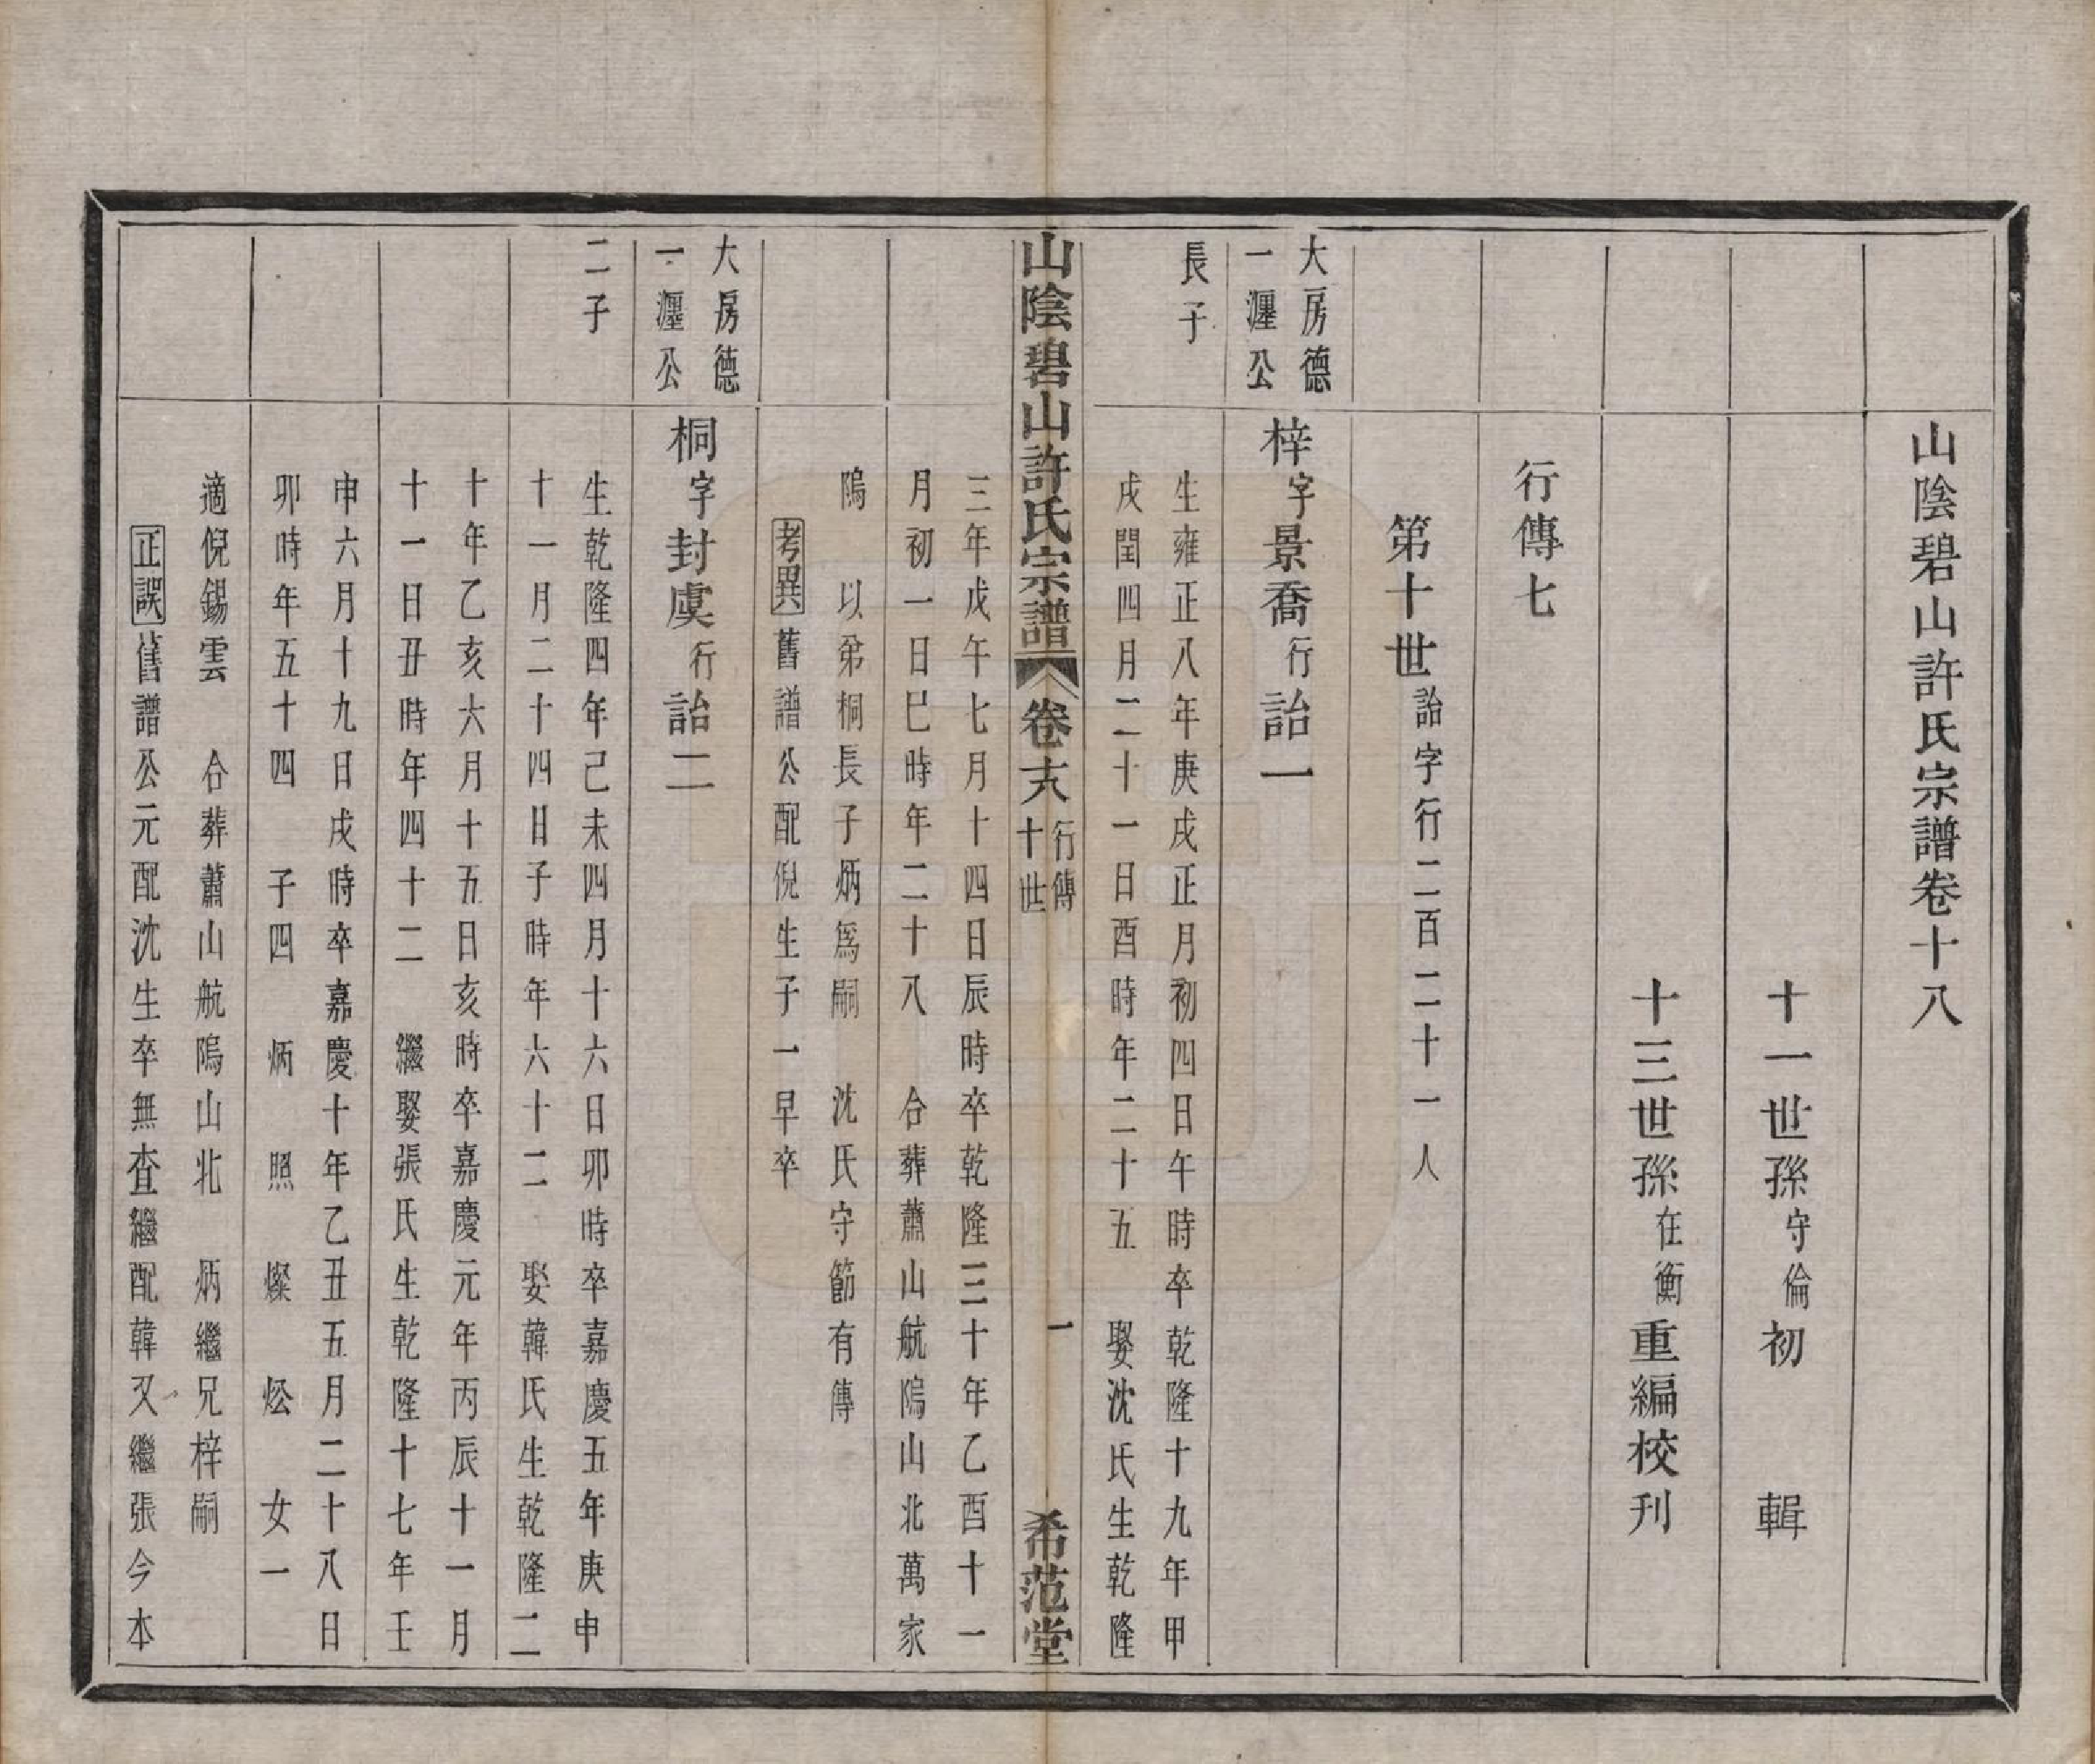 山陰碧山許氏宗譜卷十八
十一世孫守倫初 輯
十三世孫在衡重編校刊
行傳七
第十世詒字行二百二十一人
大房德
一瀍公
梓字景喬行詒一
長子
生雍正八年庚戌正月初四日午時卒乾隆十九年甲
戌閏四月二十一日酉時年二十五 娶沈氏生乾隆
山陰碧山許氏宗譜 卷十八 行傳 十世 一 希范堂
三年戊午七月十四日辰時卒乾隆三十年乙酉十一
月初一日巳時年二十八 合葬蕭山航塢山北萬家
塢 以弟桐長子炳為嗣 沈氏守節有傳
考異舊譜公配倪生子一早卒
大房德
一瀍公
桐字封虞行詒二
二子
生乾隆四年己未四月十六日卯時卒嘉慶五年庚申
十一月二十四日子時年六十二 娶韓氏生乾隆二
十年乙亥六月十五日亥時卒嘉慶元年丙辰十一月
十一日丑時年四十二 繼娶張氏生乾隆十七年壬
申六月十九日戌時卒嘉慶十年乙丑五月二十八日
卯時年五十四 子四 炳 照 燦 炂 女一
適倪錫雲 合葬蕭山航塢山北 炳繼兄梓嗣
正誤舊譜公元配沈生卒無查繼配韓又繼張今本